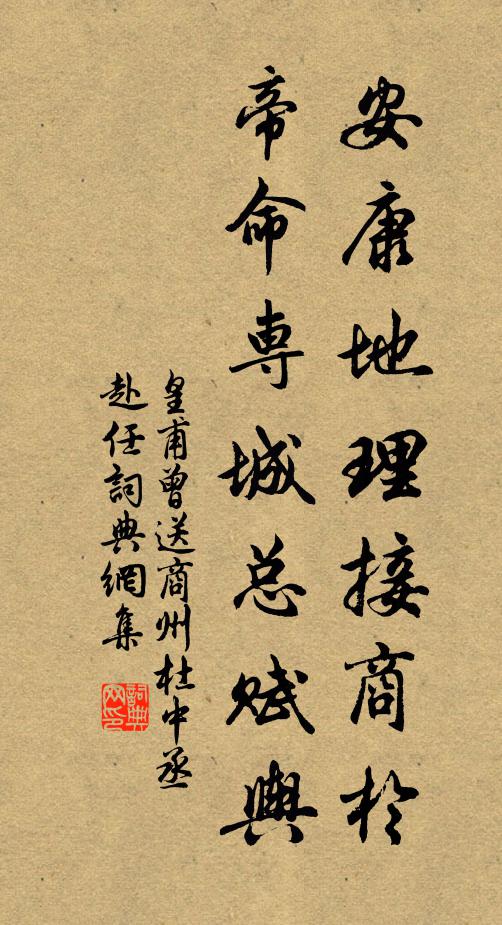 安康地理接商於
帝命専城总赋輿
皇甫曾送商州杜中丞
赴任詞典網集
詞典
网印